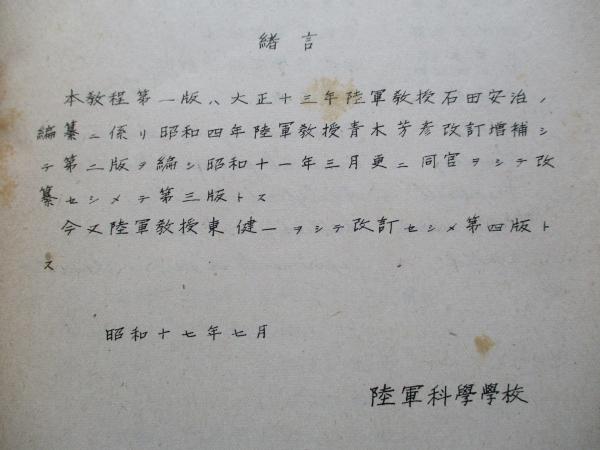 緒言
本教程第一版ハ大正十三年陸軍教授石田安治ノ
編纂ニ係リ昭和四年陸軍教授青木芳彦改訂増補シ
テ第二版ヲ編シ昭和十一年三月更ニ同官ヲシテ改
纂セシメテ第三版トス
今又陸軍教授東健一ヲシテ改訂セシメ第四版ト
ス
昭和十七年七月
陸軍科學學校